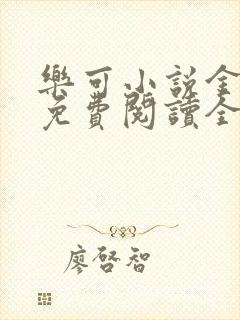 樂可小說全
免費閱讀全
廖啓智